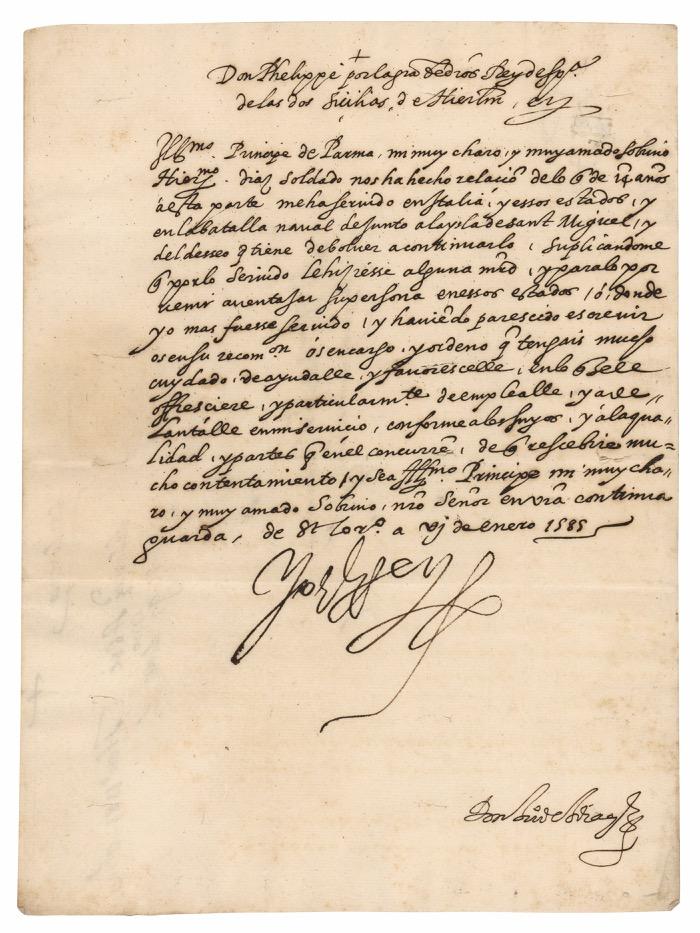 Don Phelippe por la gra de dios Rey de Espª.
de las dos Sicilias, de Hierlm, etz
Illmo. Principe de Parma, mi muy charo, y muy amado Sobrino
Hiermo. diaz soldado nos ha hecho relaciõ delo q̃ de 14 años
a esta parte me ha servido en Italia, y essos estados, y
en la batalla naval de junto a la ysla de sant Miguel, y
del desseo q̃ tiene de bolver a continuarlo, Suplicandome
q̃ por lo servido le hiziesse alguna mrd, y para lo por
venir aventajar su persona en essos estados, ó, donde
yo mas fuesse servido, y haviẽdo parescido escrevir
os en su recomon. ós encargo, y ordeno q̃ tengais mucho
cuydado, de ayudalle, y favorescelle, en lo q̃ se le
offresciere, y particularmte. de emplealle, y ade„
lantalle en mi servicio, conforme a los suyos, y á la qua„
lidad, y partes q̃ en el concurrẽ, de q̃ rescebire mu=
cho contentamiento, y sea Illmo. Principe mi muy cha„
ro, y muy amado Sobrino, nr̃o Señor en vr̃a continua
guarda, de St Lorº. a vj de enero 1585
Yo el Rey
Don